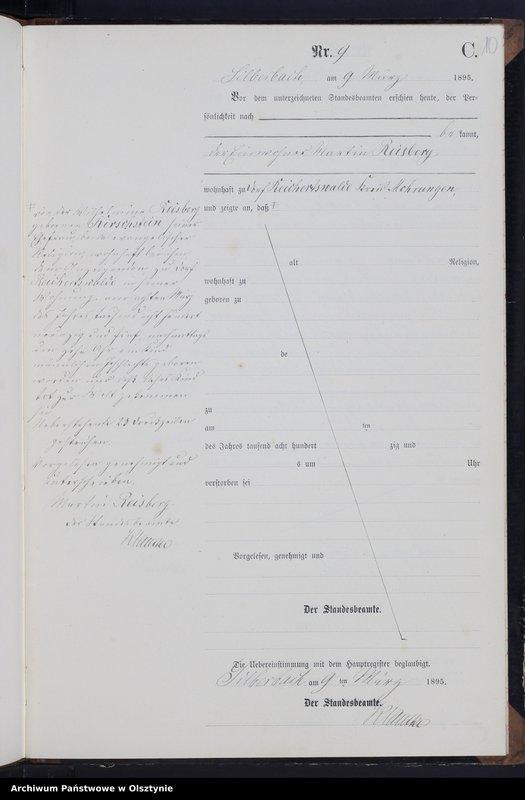 Nr. 9
C. 10
Silberbach am 9 März 1895.
Vor dem unterzeichneten Standesbeamten erschien heute, der Per-
sönlichkeit nach
be kannt,
der Einwohner Martin Reisberg
wohnhaft zu Dorf Reichertswalde Kreis Mohrungen,
und zeigte an, daß
von der Wilhelmine Reisberg
geborenen Kirschstein, seiner
Ehefrau, beide evangelischer
Religion, wohnhaft bei ihm
dem Anzeigenden zu Dorf
Reichertswalde in seiner
Wohnung am achten März
des Jahres tausend acht hundert
neunzig und fünf nachmittags
um zehn Uhr ein Kind
männlichen Geschlechts geboren
worden und daß dieses Kind
todt zur Welt gekommen
sei
Vorstehende 23 Druckzeilen
gestrichen.
Vorgelesen genehmigt und
unterschrieben.
Martin Reisberg
der Standesbeamte
alt Religion,
wohnhaft zu
geboren zu
de
zu
am ten
des Jahres tausend acht hundert zig und
s um Uhr
verstorben sei
Vorgelesen, genehmigt und
Der Standesbeamte.
Die Uebereinstimmung mit dem Hauptregister beglaubigt.
Silberbach am 9 ten März 1895.
Der Standesbeamte.
Archiwum Państwowe w Olsztynie